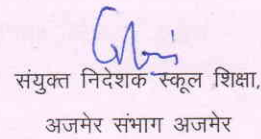 संयुक्त निदेशक स्कूल शिक्षा,
अजमेर संभाग अजमेर